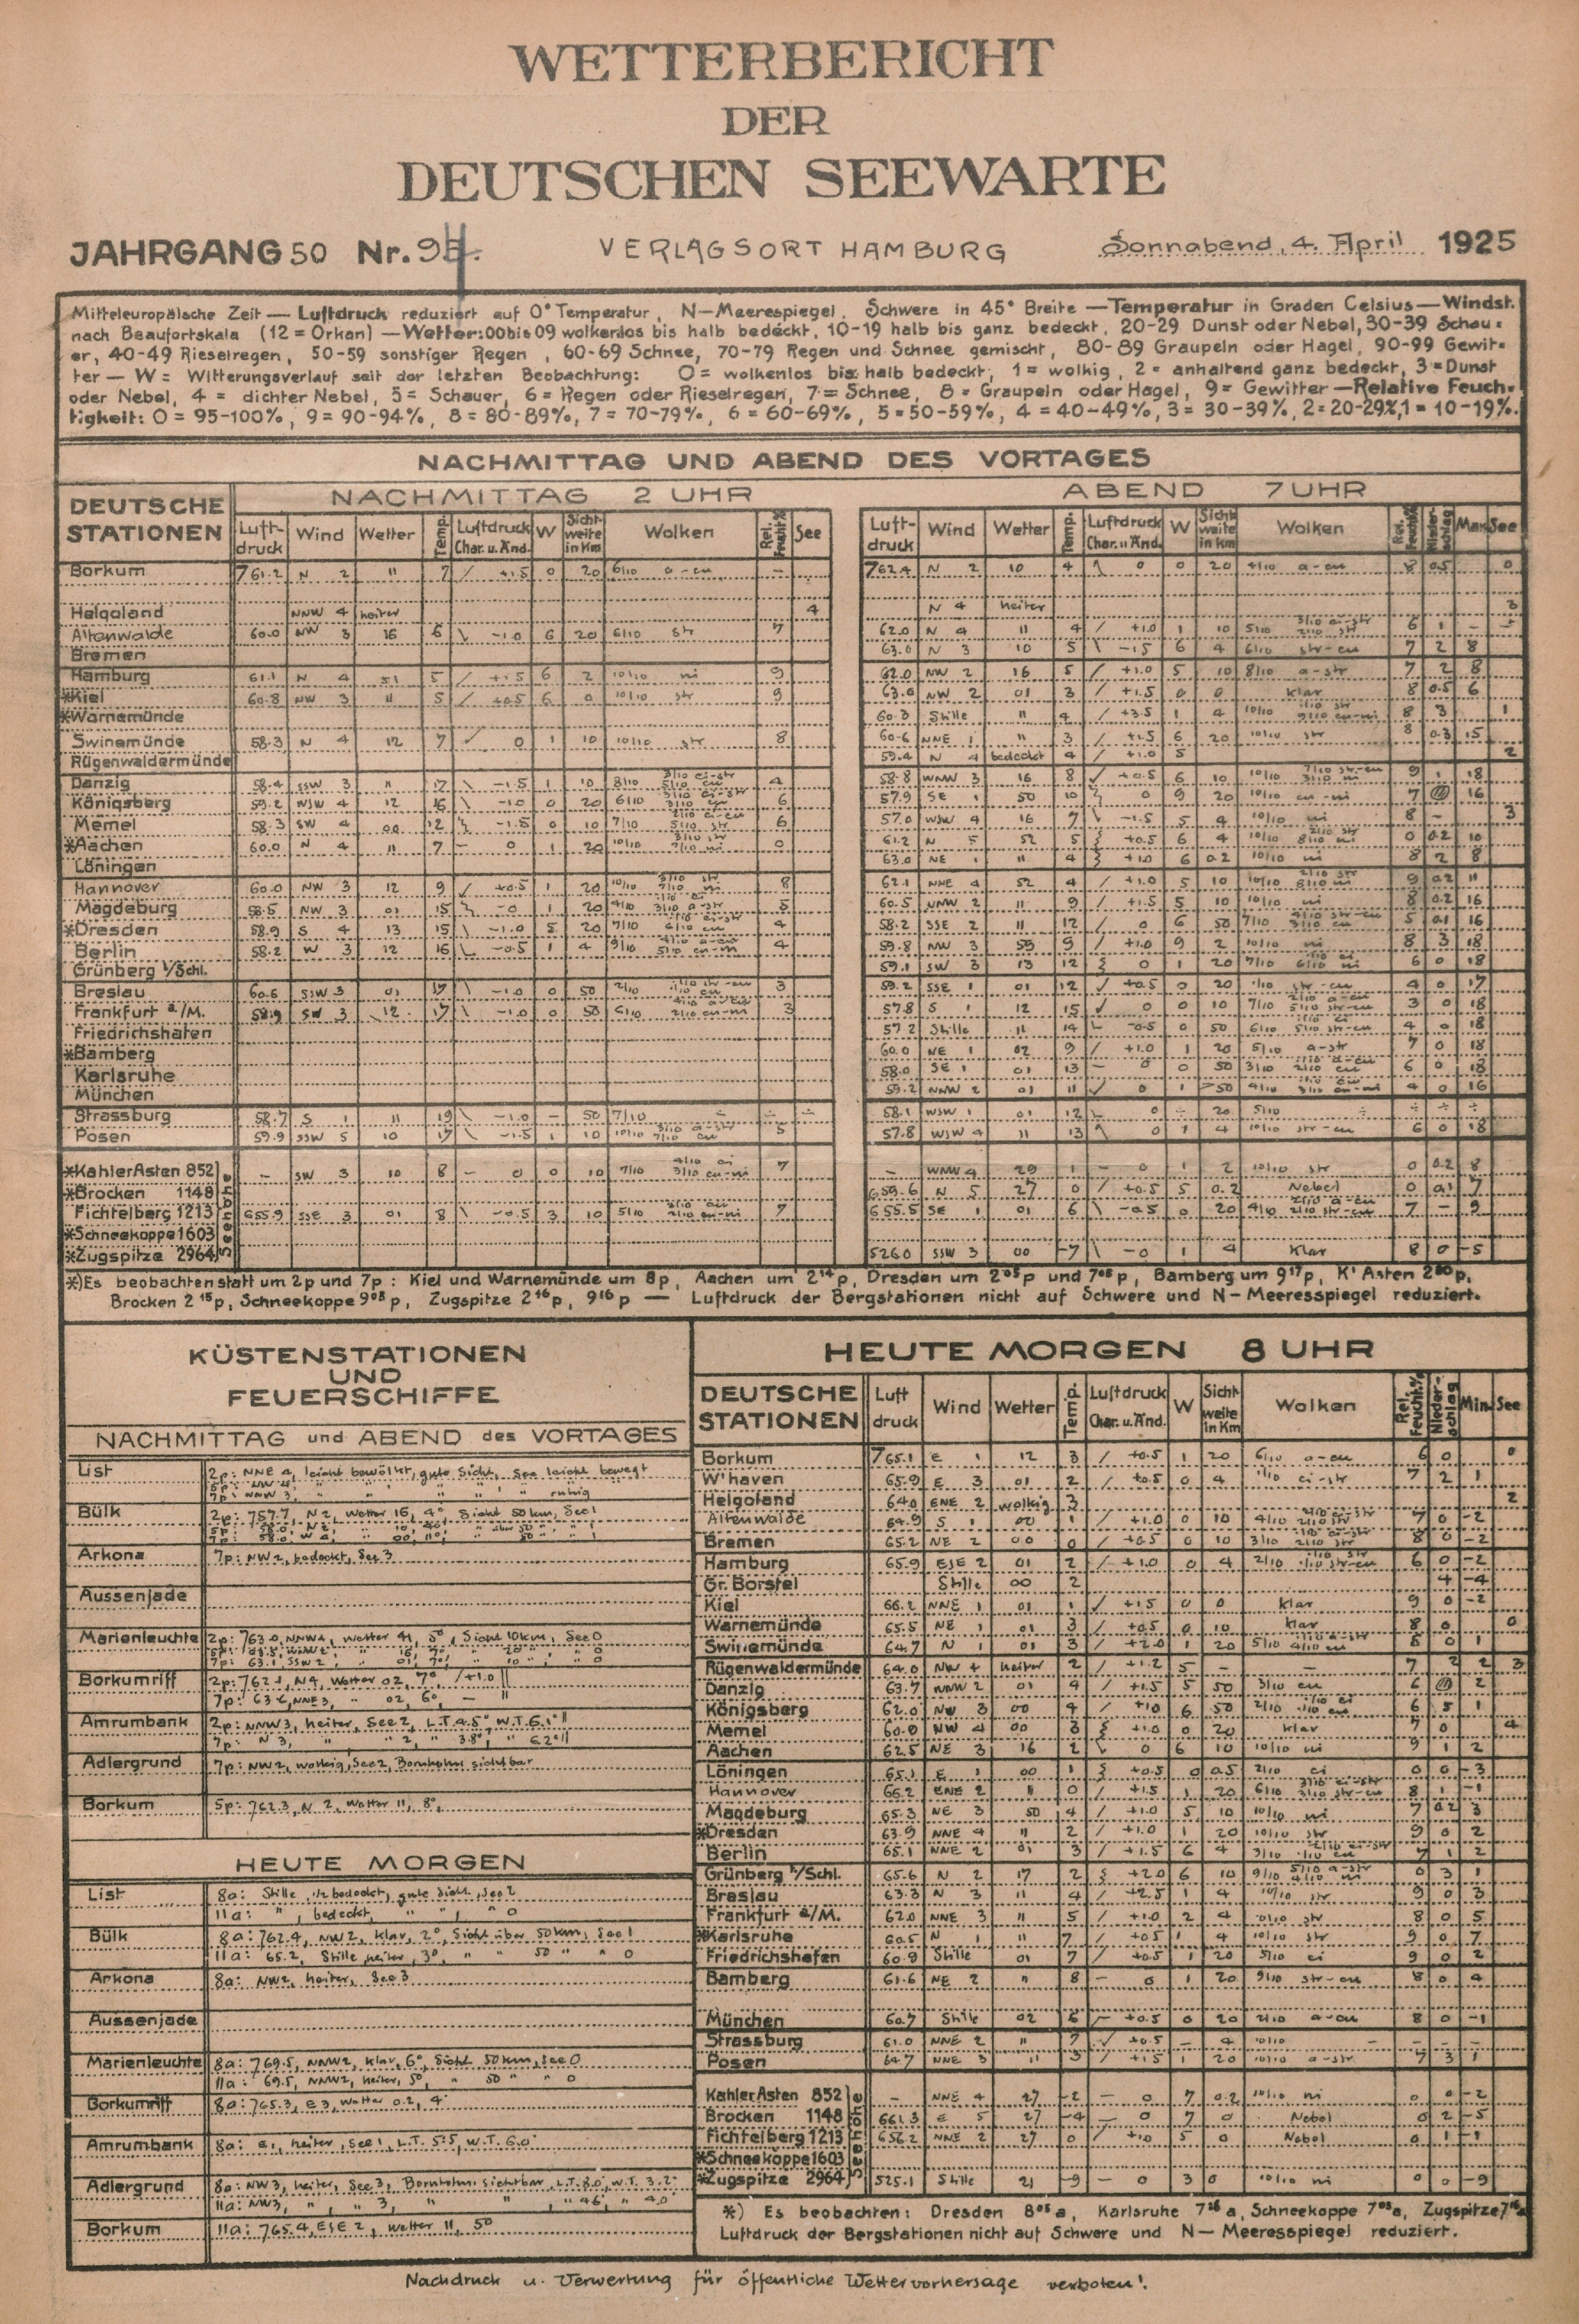 WETTERBERICHT
DER
DEUTSCHEN SEEWARTE
JAHRGANG 50 Nr. 94. VERLAGSORT HAMBURG Sonnabend, 4. April 1925
Mitteleuropäische Zeit — Luftdruck reduziert auf 0° Temperatur, N—Meerespiegel, Schwere in 45° Breite — Temperatur in Graden Celsius — Windst.
nach Beaufortskala (12 = Orkan) — Wetter: 00 bis 09 wolkenlos bis halb bedeckt, 10-19 halb bis ganz bedeckt, 20-29 Dunst oder Nebel, 30-39 Schau-
er, 40-49 Rieselregen, 50-59 sonstiger Regen, 60-69 Schnee, 70-79 Regen und Schnee gemischt, 80-89 Graupeln oder Hagel, 90-99 Gewit-
ter — W = Witterungsverlauf seit der letzten Beobachtung: 0 = wolkenlos bis halb bedeckt, 1 = wolkig, 2 = anhaltend ganz bedeckt, 3 = Dunst
oder Nebel, 4 = dichter Nebel, 5 = Schauer, 6 = Regen oder Rieselregen, 7 = Schnee, 8 = Graupeln oder Hagel, 9 = Gewitter — Relative Feuch-
tigkeit: 0 = 95-100%, 9 = 90-94%, 8 = 80-89%, 7 = 70-79%, 6 = 60-69%, 5 = 50-59%, 4 = 40-49%, 3 = 30-39%, 2 = 20-29%, 1 = 10-19%.
NACHMITTAG UND ABEND DES VORTAGES
DEUTSCHE STATIONEN
NACHMITTAG 2 UHR
Luft-druck Wind Wetter Temp. Luftdruck Char. u. Änd. W Sicht-weite in Km Wolken Rel. Feucht.% See
ABEND 7 UHR
Luft-druck Wind Wetter Temp. Luftdruck Char. u. Änd. W Sicht-weite in Km Wolken Rel. Feucht.% Nieder-schlag Max. See
Borkum 761.2 N 2 11 7 +1.5 0 20 6/10 a-cu — 762.4 N 2 10 4 0 0 20 4/10 a-cu 8 0.5 0
Helgoland NNW 4 heiter 4 N 4 heiter 3
Altenwalde 60.0 NW 3 16 6 -1.0 6 20 6/10 str 7 62.0 N 4 11 4 +1.0 1 10 5/10 6 1 —
Bremen 63.0 N 3 10 5 -1.5 6 4 6/10 str-cu 7 2 8
Hamburg 61.1 N 4 51 5 +1.5 6 2 10/10 ni 9 62.0 NW 2 16 5 +1.0 5 10 8/10 a-str 7 2 8
*Kiel 60.8 NW 3 11 5 +0.5 6 0 10/10 str 9 63.0 NW 2 01 3 +1.5 0 0 klar 8 0.5 6
*Warnemünde 60.3 Stille 11 4 +3.5 1 4 10/10 8 3 1
Swinemünde 58.3 N 4 12 7 0 1 10 10/10 str 8 60.6 NNE 1 11 3 +1.5 6 20 10/10 str 8 0.3 15
Rügenwaldermünde 59.4 N 4 bedeckt 4 +1.0 5 2
Danzig 58.4 SSW 3 11 17 -1.5 1 10 8/10 4 58.8 WNW 3 16 8 +0.5 6 10 10/10 9 1 18
Königsberg 59.2 WSW 4 12 16 -1.0 0 20 6/10 6 57.9 SE 1 50 10 0 9 20 10/10 cu-ni 7 16
Memel 58.3 SW 4 00 12 -1.5 0 10 7/10 6 57.0 WSW 4 16 7 -1.5 5 4 10/10 ni 8 — 3
*Aachen 60.0 N 4 11 7 — 0 1 20 10/10 0 61.2 N 5 52 5 +0.5 6 4 10/10 0 0.2 10
Löningen 63.0 NE 1 11 4 +1.0 6 0.2 10/10 ni 8 2 8
Hannover 60.0 NW 3 12 9 +0.5 1 20 10/10 8 62.1 NNE 4 52 4 +1.0 5 10 10/10 9 0.2 11
Magdeburg 58.5 NW 3 01 15 -0 1 20 4/10 5 60.5 WNW 2 11 9 +1.5 5 10 10/10 ni 8 0.2 16
*Dresden 58.9 S 4 13 15 -1.0 5 20 7/10 4 58.2 SSE 2 11 12 0 6 50 7/10 5 0.1 16
Berlin 58.2 W 3 12 16 -0.5 1 4 9/10 4 59.8 NW 3 59 9 +1.0 9 2 10/10 ni 8 3 18
Grünberg i/Schl. 59.1 SW 3 13 12 0 1 20 7/10 6 0 18
Breslau 60.6 SSW 3 01 17 -1.0 0 50 2/10 3 59.2 SSE 1 01 12 +0.5 0 20 1/10 str-cu 4 0 17
Frankfurt a/M. 58.9 SW 3 12 17 -1.0 0 50 6/10 3 57.8 S 1 12 15 0 0 10 7/10 3 0 18
Friedrichshafen 57.2 Stille 11 14 -0.5 0 50 6/10 4 0 18
*Bamberg 60.0 NE 1 02 9 +1.0 1 20 5/10 a-str 7 0 18
Karlsruhe 58.0 SE 1 01 13 — 0 0 50 3/10 6 0 18
München 59.2 NNW 2 01 11 0 1 >50 4/10 4 0 16
Strassburg 58.7 S 1 11 19 -1.0 — 50 7/10 ÷ ÷ 58.1 WSW 1 01 12 0 ÷ 20 5/10 ÷ ÷ ÷ ÷
Posen 59.9 SSW 5 10 17 -1.5 1 10 10/10 5 57.8 WSW 4 11 13 0 1 4 10/10 str-cu 6 0 18
Seehöhe
*Kahler Asten 852 — SW 3 10 8 — 0 0 10 7/10 7 — WNW 4 29 1 — 0 1 2 10/10 str 0 0.2 8
*Brocken 1148 659.6 N 5 27 0 +0.5 5 0.2 Nebel 0 0.1 7
Fichtelberg 1213 655.9 SSE 3 01 8 -0.5 3 10 5/10 7 655.5 SE 1 01 6 -0.5 0 20 4/10 7 — 9
*Schneekoppe 1603
*Zugspitze 2964 526.0 SSW 3 00 -7 -0 1 4 Klar 8 0 -5
*) Es beobachten statt um 2p und 7p: Kiel und Warnemünde um 8p, Aachen um 2 14 p, Dresden um 2 05 p und 7 05 p, Bamberg um 9 17 p, K' Asten 2 20 p,
Brocken 2 15 p, Schneekoppe 9 03 p, Zugspitze 2 16 p, 9 16 p — Luftdruck der Bergstationen nicht auf Schwere und N—Meeresspiegel reduziert.
KÜSTENSTATIONEN
UND
FEUERSCHIFFE
NACHMITTAG und ABEND des VORTAGES
List 2p: NNE 4, leicht bewölkt, gute Sicht, See leicht bewegt
7p: NNW 3, " " " " " ruhig
Bülk 2p: 757.7, N 2, Wetter 16, 4°, Sicht 50 km, See 1
Arkona 7p: NW 2, bedeckt, See 3
Aussenjade
Marienleuchte 2p: 763.0, NNW 4, Wetter 41, 5°, Sicht 10 km, See 0
7p: 63.1, SSW 2
Borkumriff 2p: 762.1, N 4, Wetter 02, 7°, /+1.0
7p: NNE 3, " 02, 6°, —
Amrumbank 2p: NNW 3, heiter, See 2, L.T. 4.5° W.T. 6.1°
7p: N 3, " " 2, " 3.8°, " 6.2°
Adlergrund 7p: NW 2, wolkig, See 2, Bornholm sichtbar
Borkum 5p: 762.3, N 2, Wetter 11, 8°,
HEUTE MORGEN
List 8a: Stille, 1/2 bedeckt, gute Sicht, See 2
11a: " , bedeckt, " " , " 0
Bülk 8a: 762.4, NW 2, klar, 2°, Sicht über 50 km, See 1
11a: 65.2, Stille, heiter, 3°, " 50 " " 0
Arkona 8a: NW 2, heiter, See 3
Aussenjade
Marienleuchte 8a: 769.5, NNW 2, klar, 6°, Sicht 50 km, See 0
11a: 69.5, NNW 2, heiter, 5°, " 50 " " 0
Borkumriff 8a: 765.3, E 3, Wetter 0.2, 4°
Amrumbank 8a: E 1, heiter, See 1, L.T. 5.5, W.T. 6.0
Adlergrund 8a: NW 3, heiter, See 3, Bornholm sichtbar, L.T. 8.0, W.T. 3.2
11a: NW 3, " , " 3, " " , " 4.6, " 4.0
Borkum 11a: 765.4, ESE 2, Wetter 11, 5°
HEUTE MORGEN 8 UHR
DEUTSCHE STATIONEN Luft druck Wind Wetter Temp. Luftdruck Char. u. Änd. W Sicht-weite in Km Wolken Rel. Feucht.% Nieder-schlag Min. See
Borkum 765.1 E 1 12 3 +0.5 1 20 6/10 a-cu 6 0 0
W'haven 65.9 E 3 01 2 +0.5 0 4 1/10 ci-str 7 2 1
Helgoland 64.0 ENE 2 wolkig 3 2
Altenwalde 64.9 S 1 00 1 +1.0 0 10 4/10 7 0 -2
Bremen 65.2 NE 2 00 0 +0.5 0 10 3/10 8 0 -2
Hamburg 65.9 ESE 2 01 2 +1.0 0 4 2/10 6 0 -2
Gr. Borstel Stille 00 2 4 -4
Kiel 66.2 NNE 1 01 1 +1.5 0 0 klar 9 0 -2
Warnemünde 65.5 NE 1 01 3 +0.5 0 10 klar 8 0 0
Swinemünde 64.7 N 1 01 3 +2.0 1 20 5/10 8 0 1
Rügenwaldermünde 64.0 NW 4 heiter 2 +1.2 5 — — 7 2 2 3
Danzig 63.7 WNW 2 01 4 +1.5 5 50 3/10 cu 6 2
Königsberg 62.0 NW 3 00 4 +1.0 6 50 2/10 6 5 1
Memel 60.0 NW 4 00 3 +1.0 0 20 klar 7 0 4
Aachen 62.5 NE 3 16 2 0 6 10 10/10 ni 9 1 2
Löningen 65.1 E 1 00 1 +0.5 0 0.5 2/10 ci 0 0 -3
Hannover 66.2 ENE 2 11 0 +1.5 1 20 6/10 8 1 -1
Magdeburg 65.3 NE 3 50 4 +1.0 5 10 10/10 ni 7 0.2 3
*Dresden 63.9 NNE 4 11 2 +1.0 1 20 10/10 str 9 0 2
Berlin 65.1 NNE 2 01 3 +1.5 6 4 3/10 7 1 2
Grünberg i/Schl. 65.6 N 2 17 2 +2.0 6 10 9/10 0 3 1
Breslau 63.3 N 3 11 4 +2.5 1 4 10/10 str 9 0 3
Frankfurt a/M. 62.0 NNE 3 11 5 +1.0 2 4 10/10 str 8 0 5
*Karlsruhe 60.5 N 1 11 7 +0.5 1 4 10/10 str 9 0 7
Friedrichshafen 60.9 Stille 01 7 +0.5 1 20 5/10 ci 9 0 2
Bamberg 61.6 NE 2 11 8 — 0 1 20 9/10 str-cu 8 0 4
München 60.7 Stille 02 6 +0.5 0 20 2/10 a-cu 8 0 -1
Strassburg 61.0 NNE 2 11 7 +0.5 — 4 10/10 — — —
Posen 64.7 NNE 3 11 3 +1.5 1 20 10/10 a-str 7 3 1
Seehöhe
Kahler Asten 852 — NNE 4 27 -2 — 0 7 0.2 10/10 ni 0 0 -2
Brocken 1148 661.3 E 5 27 -4 — 0 7 0 Nebel 0 2 -5
Fichtelberg 1213 656.2 NNE 2 27 0 +1.0 5 0 Nebel 0 1 -1
*Schneekoppe 1603
*Zugspitze 2964 525.1 Stille 21 -9 — 0 3 0 10/10 ni 0 0 -9
*) Es beobachten: Dresden 8 05 a, Karlsruhe 7 26 a, Schneekoppe 7 03 a, Zugspitze 7 16 a
Luftdruck der Bergstationen nicht auf Schwere und N—Meeresspiegel reduziert.
Nachdruck u. Verwertung für öffentliche Wettervorhersage verboten!